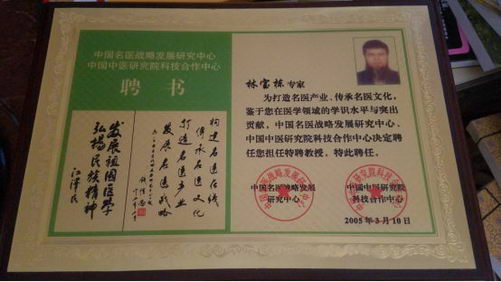 中国名医战略发展研究中心
中国中医研究院科技合作中心
聘书
构建名医在线
传承名医文化
打造名医产业
发展名医战略
发展祖国医学
弘扬民族精神
江泽民
林宝栋 专家
为打造名医产业、传承名医文化,
鉴于您在医学领域的学识水平与突出
贡献,中国名医战略发展研究中心、
中国中医研究院科技合作中心决定聘
任您担任特聘教授,特此聘任。
中国名医战略发展
研究中心
中国中医研究院
科技合作中心
2005年3月10日